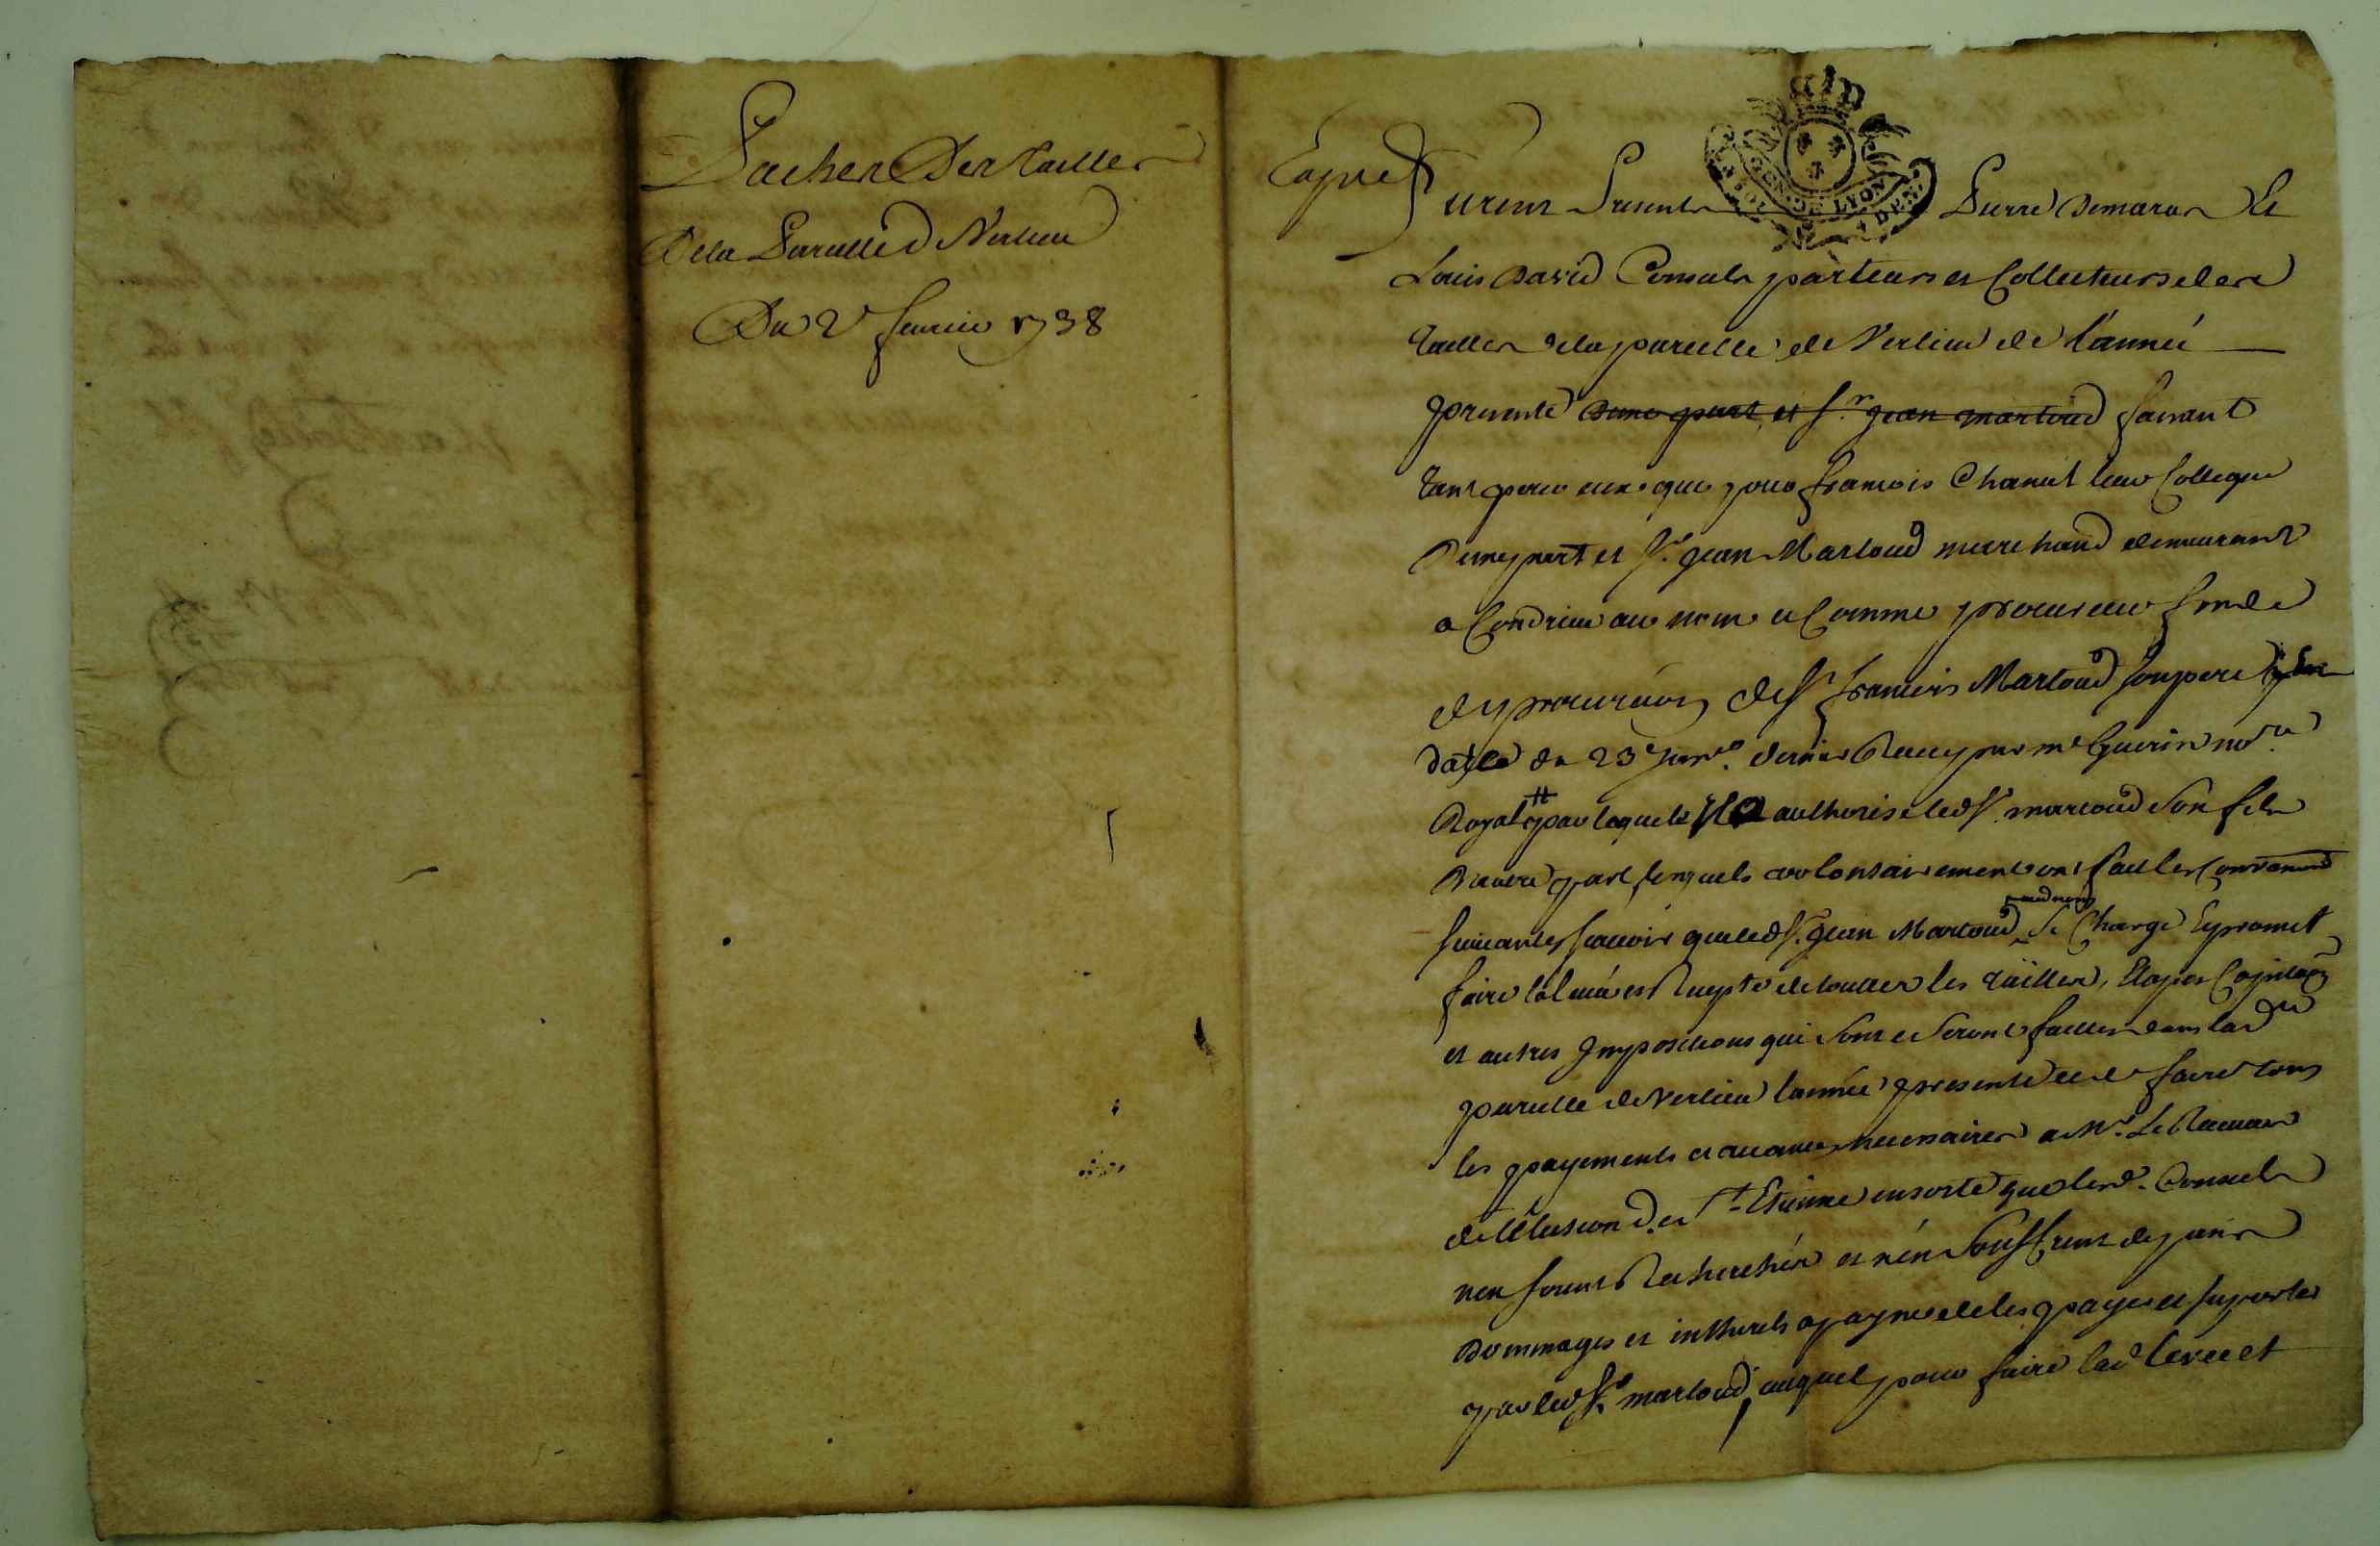 Paches Des tailles
De la Paroisse de Verlieu
Du 2e fevrier 1738
GEN. DE LYON
SOL DEN.
Furent Presents Pierre Demaras Et
Louis David Consuls porteurs et Collecteurs des
tailles de la paroisse de Verlieu de l'année
presente d'une part, et Sr. Jean Martoud faisant
tant pour eux que pour francois Chanut leur Collegue
D'une part et Sr. Jean Martoud marchand demeurant
a Condrieu au nom et Comme procureur fondé
de procuraōn de Sr francois Martoud son pere
datée du 23e janv. dernier Recu par me Guerin nore
Royal par laquelle il a authorisé led Sr. martoud son fils
D'autre part lesquels volontairement ont fait les Conventions
suivantes scavoir que led Sr. Jean Martoud aud nom Se Charge Et promet
faire la levée et Recepte de touttes les tailles, Etapes Capitaōn
et autres Impositions qui sont et seront faittes dans lad
paroisse de Verlieu l'année presente et de faire tous
les payements et avances necessaires a Mr. Le Receveur
de l'Election de St Etienne ensorte que lesd. Consuls
n'en soient Recherchés et n'en souffrent depans
Dommages et intherets a payne de les payer et suporter
par led Sr. martoud, auquel pour faire lad levée et